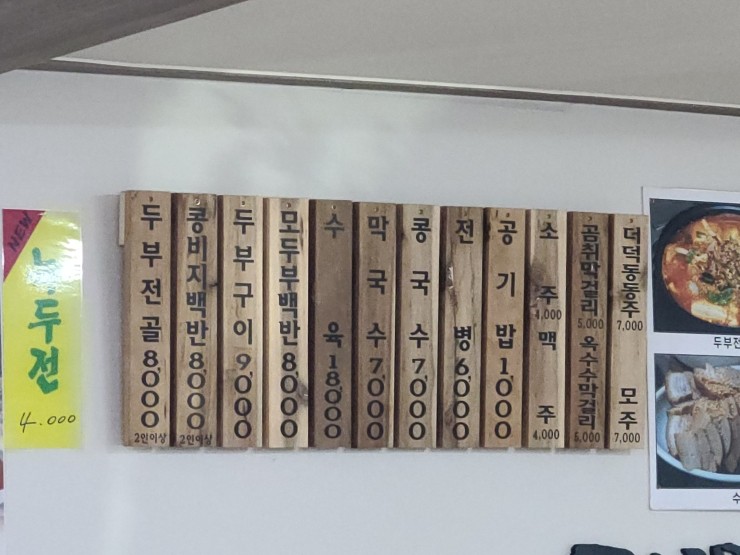 NEW
녹두전
4.000
두부전골 8,000
2인이상
콩비지백반 8,000
2인이상
두부구이 9,000
모두부백반 8,000
수육 18,000
막국수 7,000
콩국수 7,000
전병 6,000
공기밥 1,000
소주
4,000
맥주
4,000
곰취막걸리
5,000
옥수수막걸리
5,000
더덕동동주
7,000
모주
7,000
두부전
수